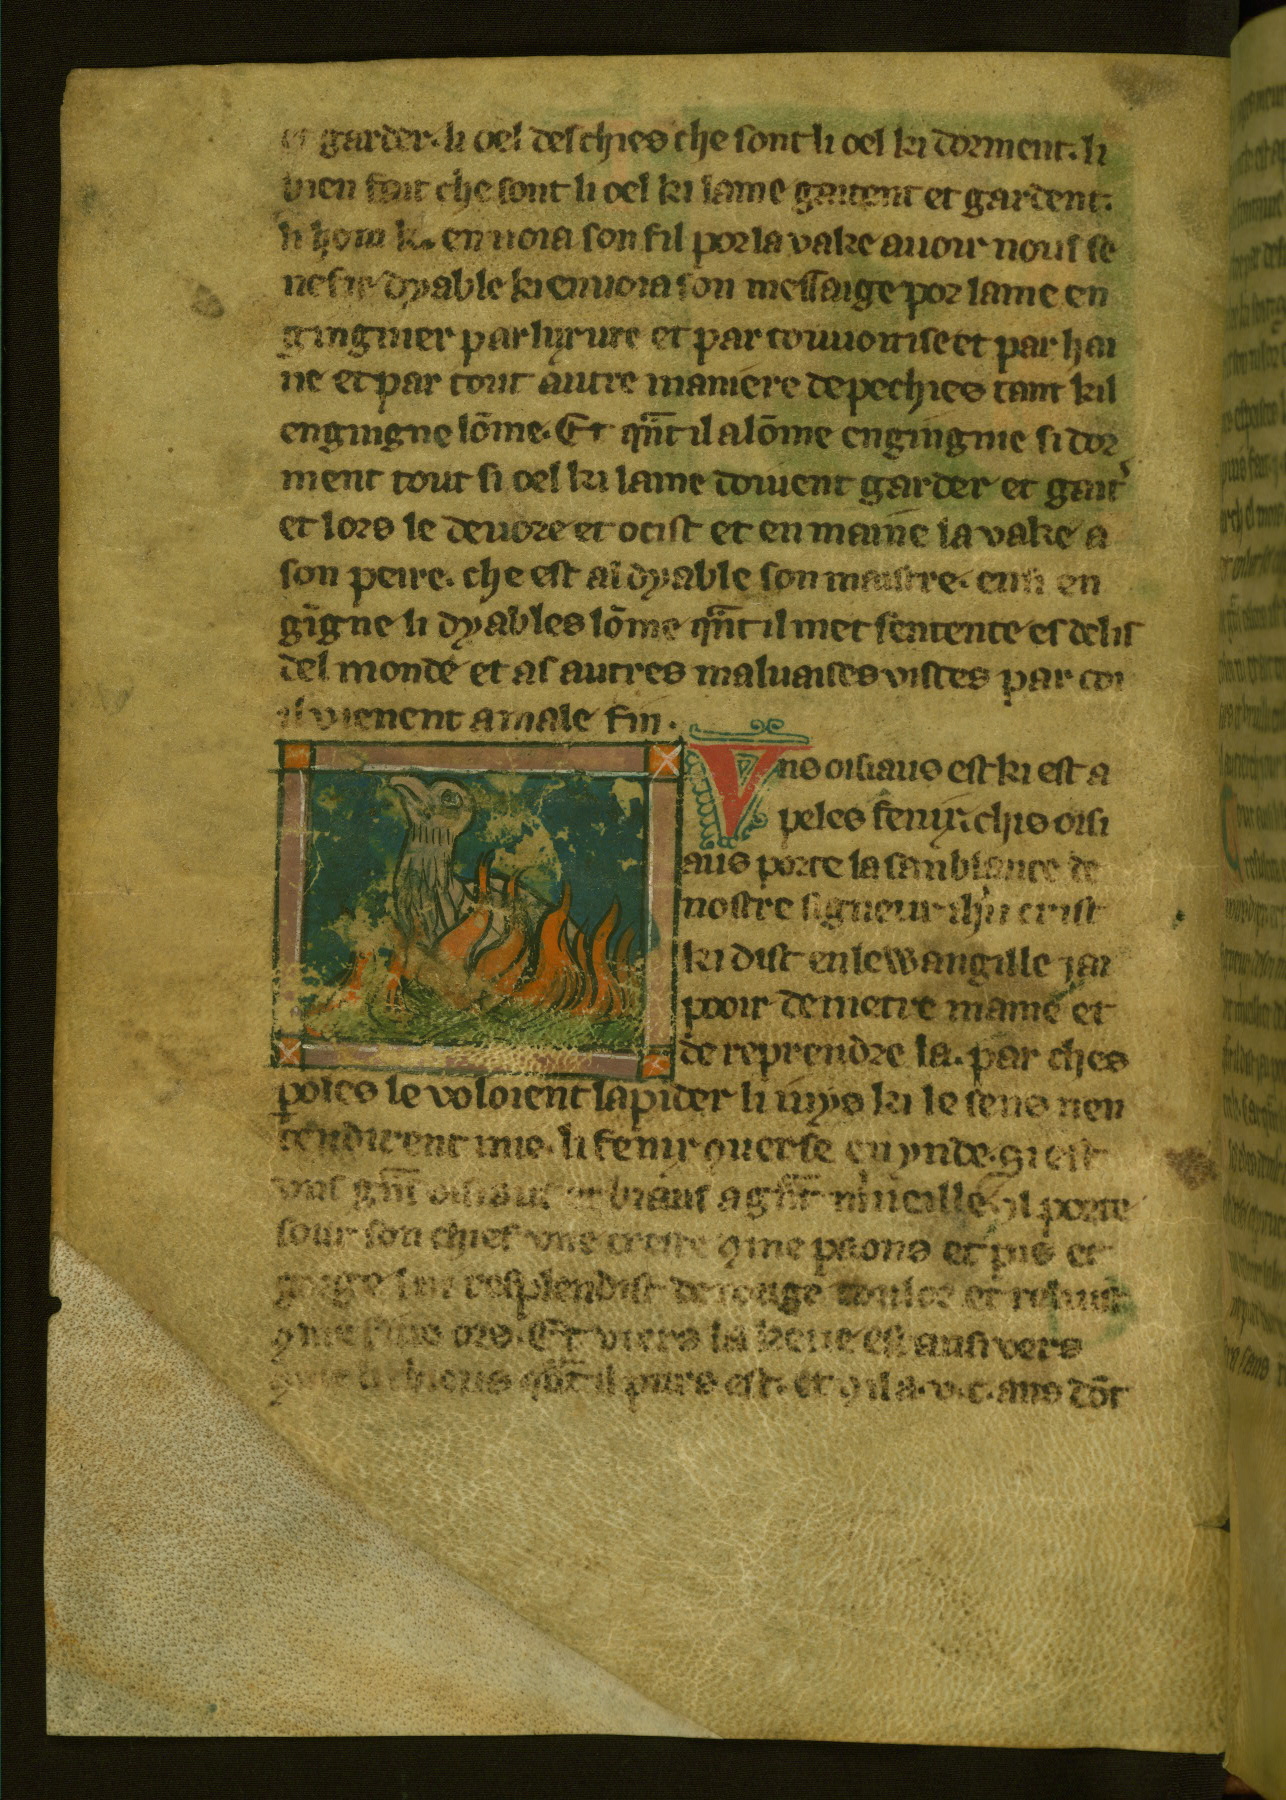 et garder. li oel des chies che sont li oel ki dorment. li
bien fait che sont li oel ki lame gaitent et gardent.
li hom k. enuoia son fil por la vake auoir nous se
nefie dyable ki enuoia son messaige por lame en
gingnier par luxure et par couuoitise et par hai
ne et par tout autre maniere de pechies tant kil
engingne lōme. Et qn̄t il a lōme engingnie si dor
ment tout si oel ki lame doiuent garder et gait'
et lors le deuore et ocist et en maine la vake a
son peire. che est al dyable son maistre. ensi en
gīgne li dyables lōme qn̄t il met sentente es delis
del monde et as autres maluaises visces par coi
il vienent a male fin.
Vns oisiaus est ki est a
peles fenix. chis oisi
aus porte la samblance de
nostre signeur ih'u crist
ki dist en lewangille jai
pooir de metre mame et
de reprendre la. par ches
poles le voloient lapider li iuys ki le sens nen
tendirent mie. li fenix 9uerse en ynde. Si est
vns gn̄t oisiaus et biaus a gn̄t m'ueille. Il porte
sour son chief vne creste 9me paons et pis et
gorge lui resplendist de rouge coulor et reluist
9me fins ors. Et viers la keue est ausi vers
qn̄t il purs est. et 9 il a .v. c. ans dōt